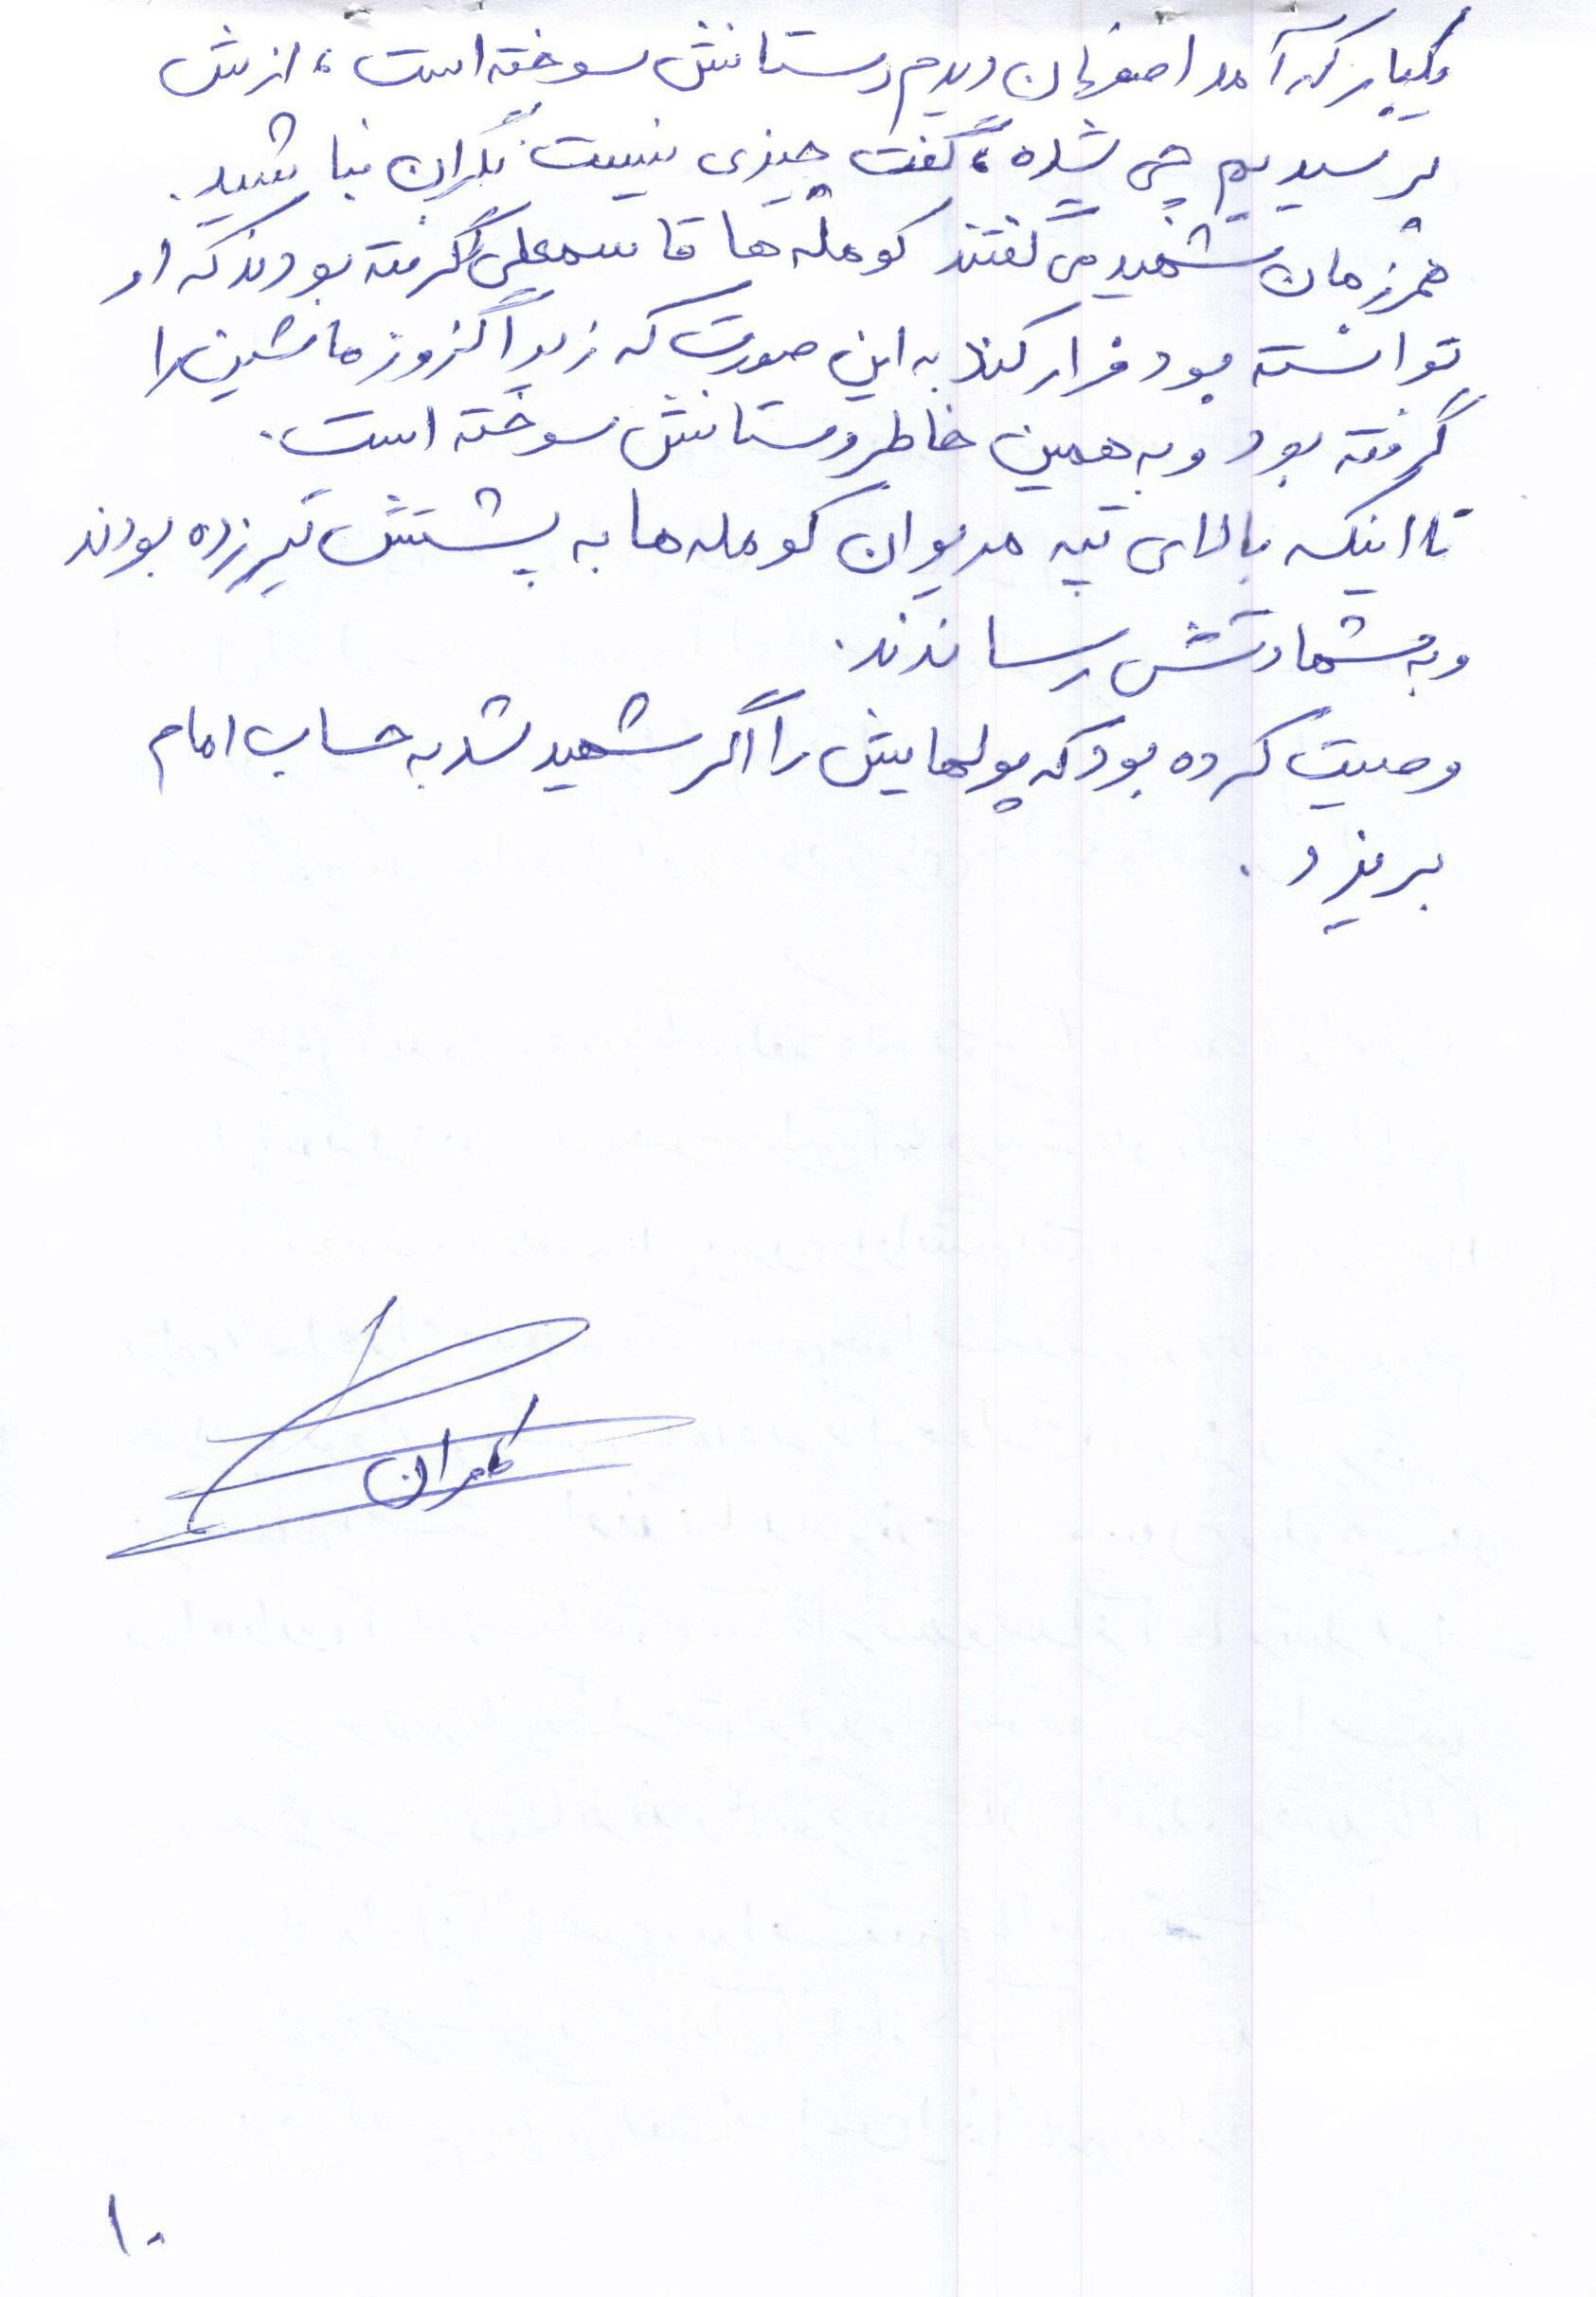 یکبار که آمد اصفهان دیدم دستانش سوخته است، ازش
پرسیدیم چی شده، گفت چیزی نیست نگران نباشید.
همرزمان شهید می گفتند کومله ها قاسمعلی گرفته بودند که او
توانسته بود فرار کند به این صورت که زیر اگزوز ماشین را
گرفته بود و به همین خاطر دستانش سوخته است.
تا اینکه بالای تپه مریوان کومله ها به پشتش تیر زده بودند
و به شهادتش رساندند.
وصیت کرده بود که پولهایش را اگر شهید شد به حساب امام
بریزد.
کامران
۱۰